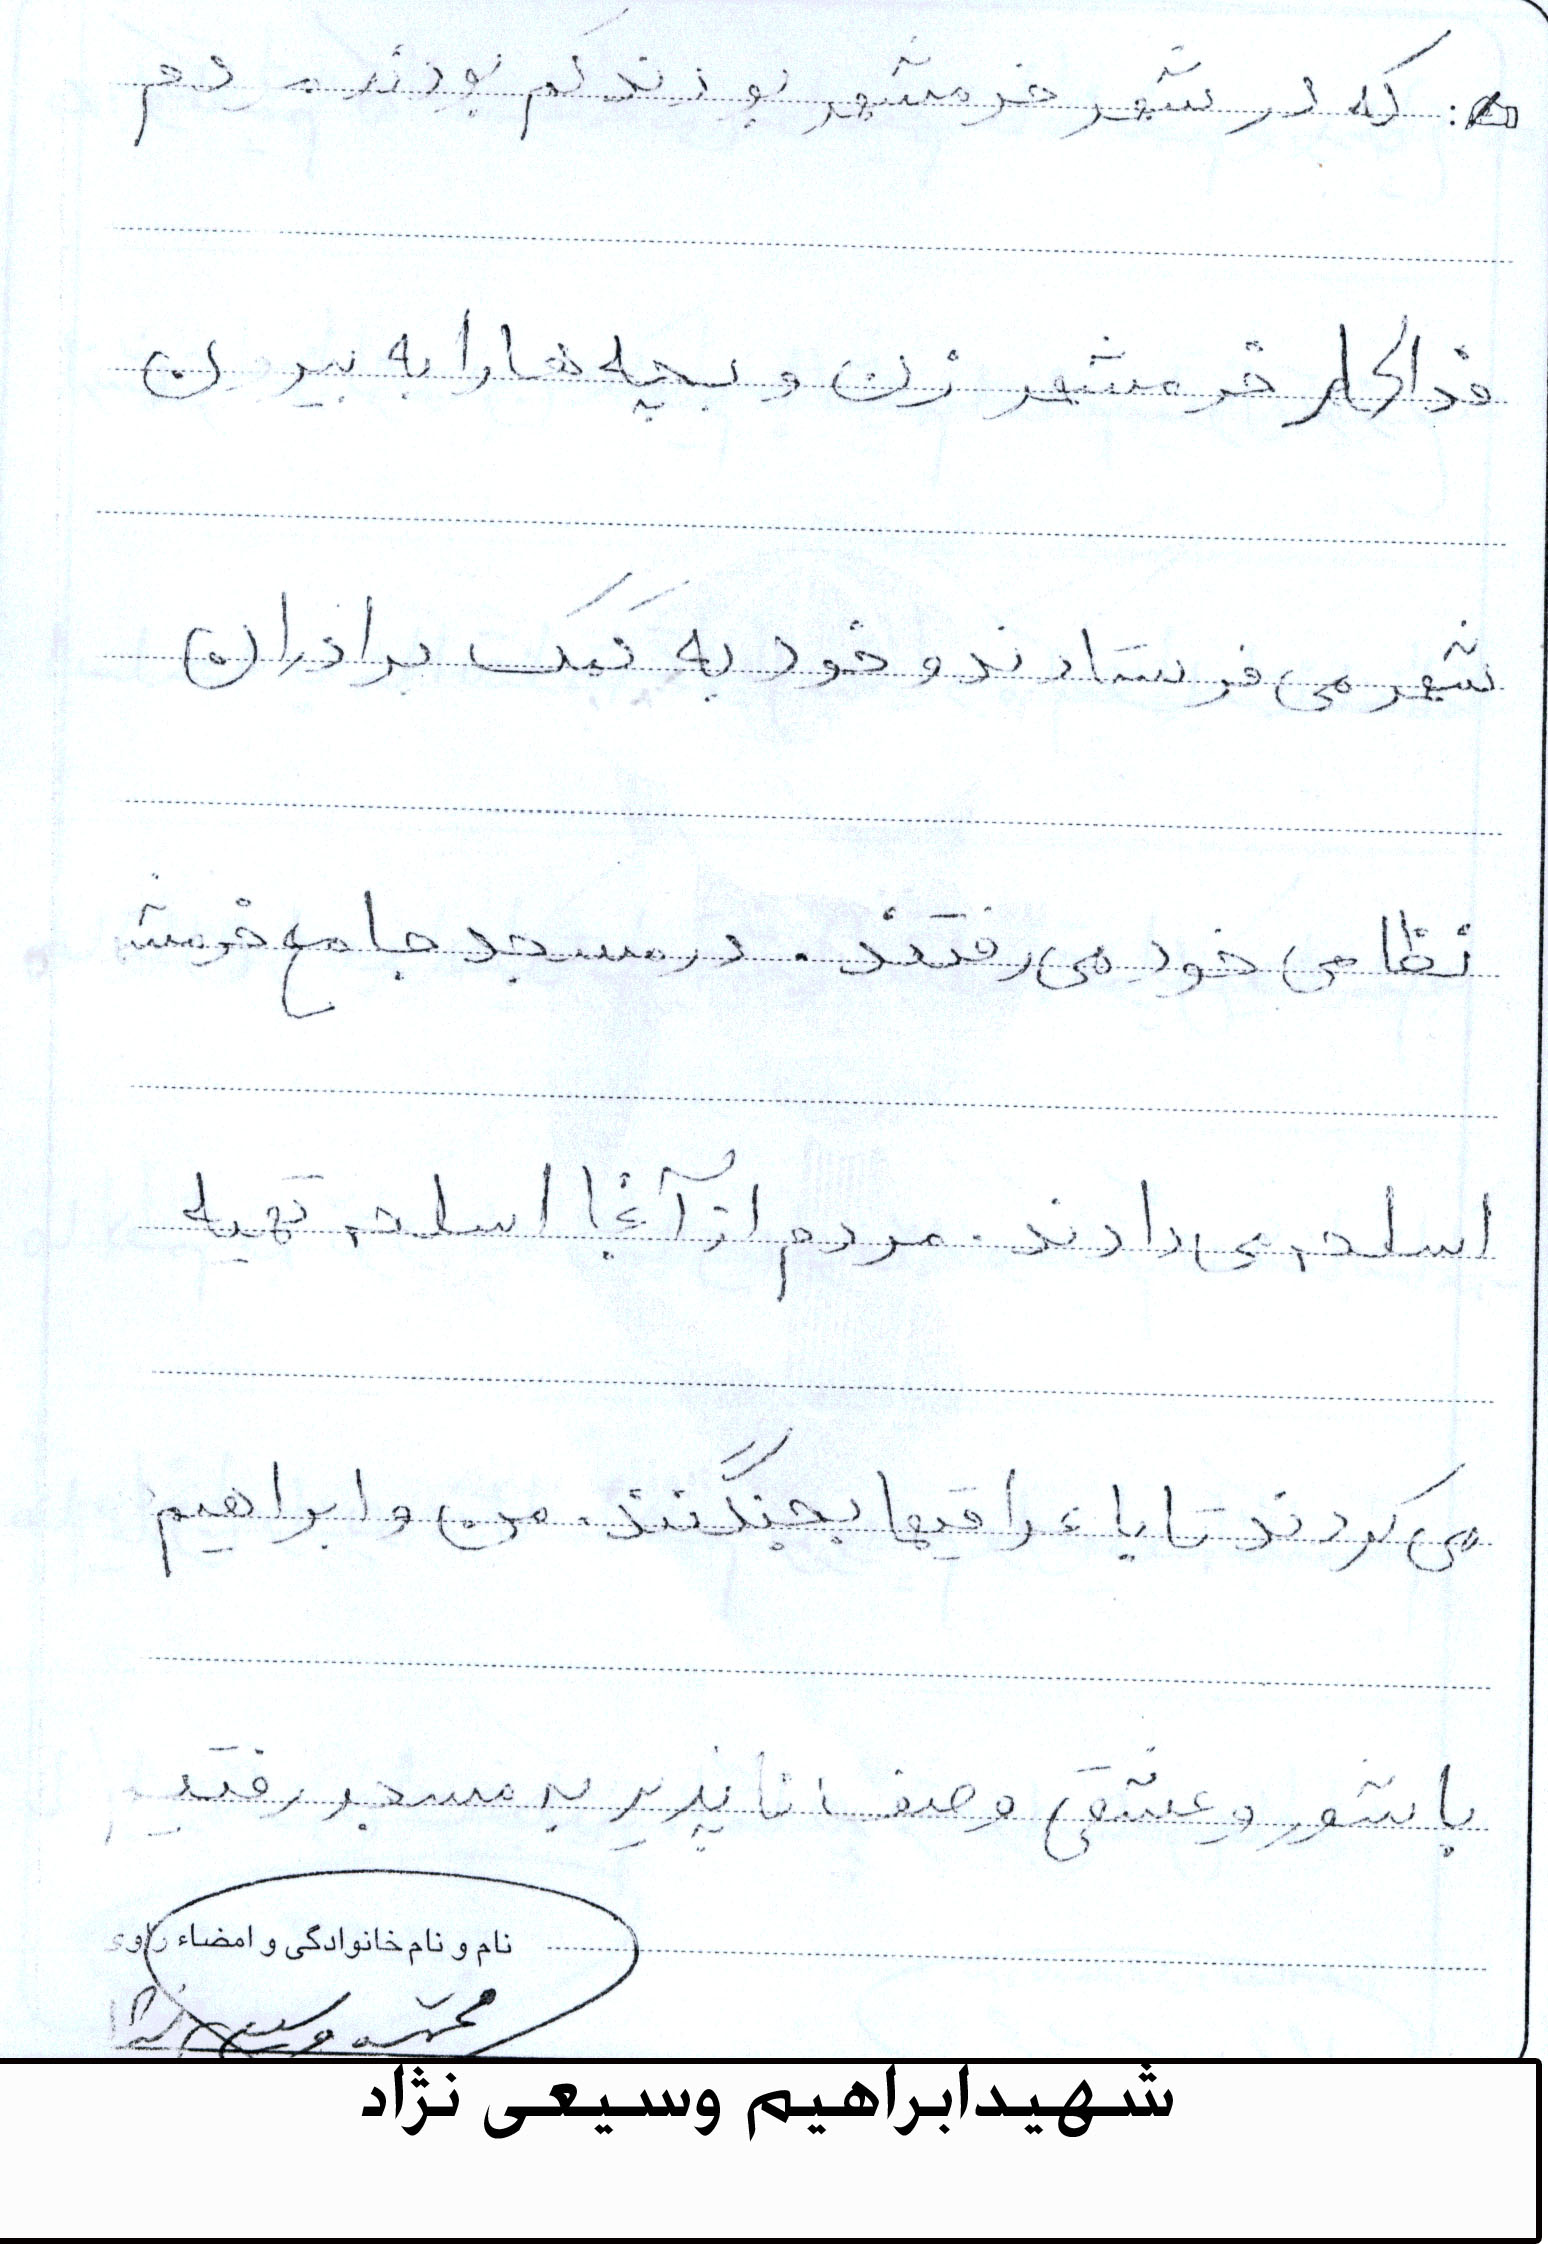 که در شهر خرمشهر بودند کم بودند مردم
فداکار خرمشهر زن و بچه ها را به بیرون
شهر می فرستادند و خود به کمک برادران
نظامی خود می رفتند. در مسجد جامع خرمش
اسلحه می دادند. مردم از آنجا اسلحه تهیه
می کردند تا با عراقیها بجنگند. من و ابراهیم
با شور و عشقی وصف ناپذیر به مسجد رفتیم
نام و نام خانوادگی و امضاء راوی
وسیعی نژاد
شهیدابراهیم وسیعی نژاد